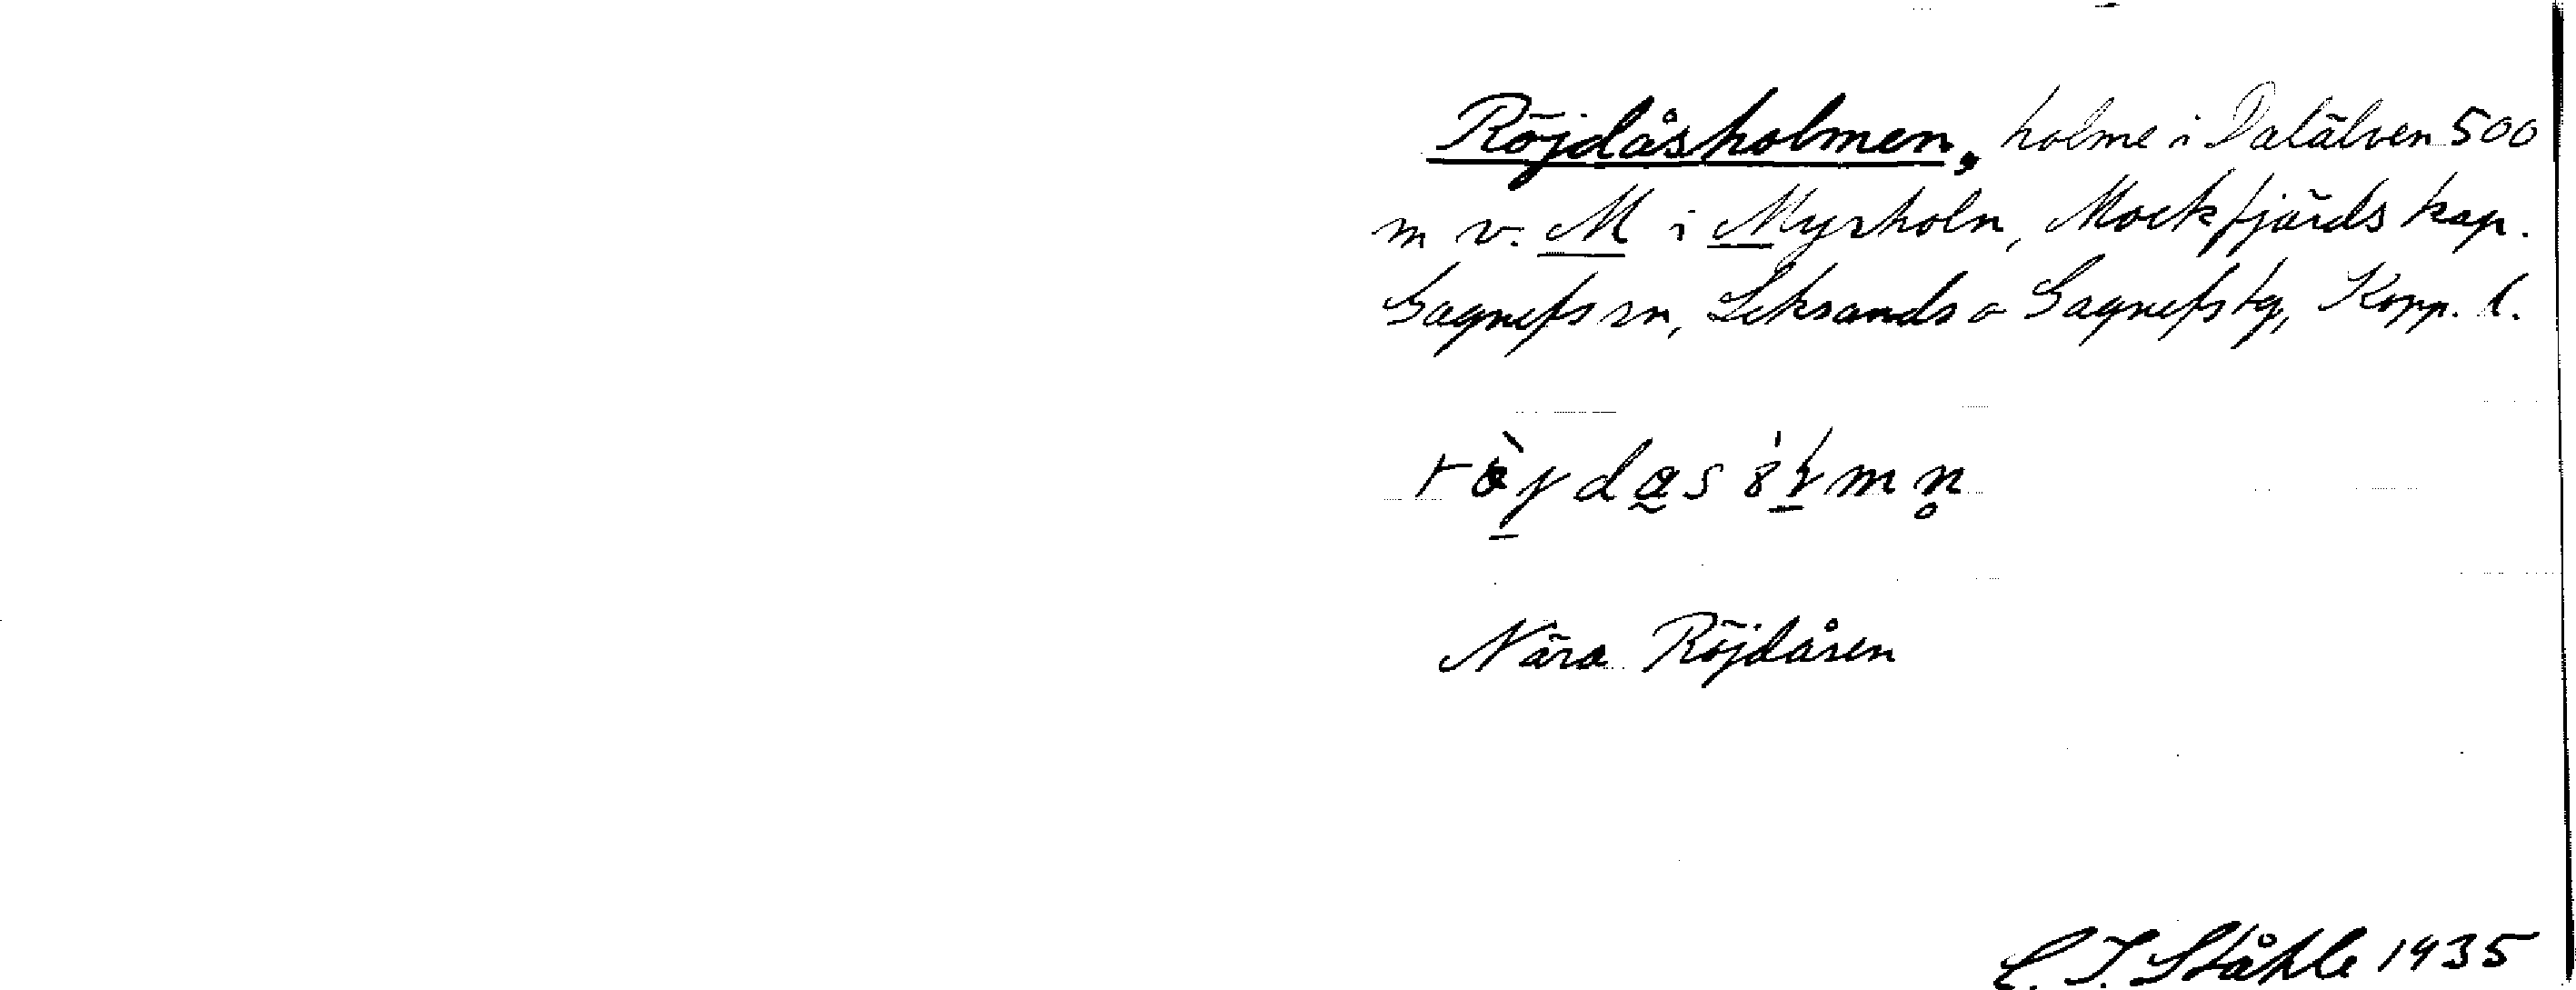 Röjdåsholmen, holme i Dalälven 500
m v. M i Myrholn, Mockfjärds kap.
Gagnefs sn, Leksands o Gagnefs tg, Kopp. l.
Nära Röjdåsen
C. I. Ståhle 1935